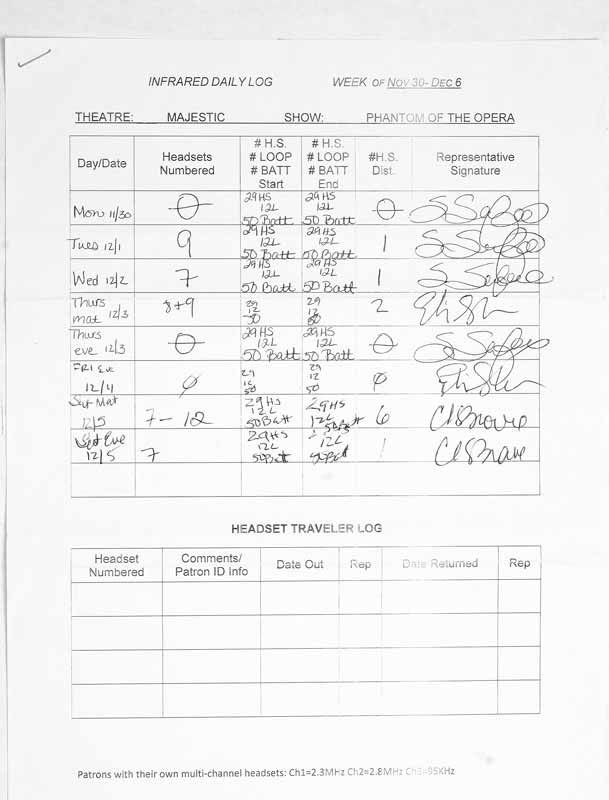 INFRARED DAILY LOG WEEK OF NOV 30- DEC 6
THEATRE: MAJESTIC SHOW: PHANTOM OF THE OPERA
Day/Date Headsets Numbered # H.S. # LOOP # BATT Start # H.S. # LOOP # BATT End #H.S. Dist. Representative Signature
Mon 11/30 0 29HS 12L 50 Batt 29HS 12L 50 Batt 0
Tues 12/1 9 29HS 12L 50 Batt 29HS 12L 50 Batt 1
Wed 12/2 7 29HS 12L 50 Batt 29HS 12L 50 Batt 1
Thurs mat 12/3 8+9 29 12 50 29 12 50 2
Thurs eve 12/3 0 29HS 12L 50 Batt 29HS 12L 50 Batt 0
FRI Eve 12/4 0 29 12 50 29 12 50 0
Sat Mat 12/5 7-12 29HS 12L 50Batt 29HS 12L 50Batt 6
Sat Eve 12/5 7 29HS 12L 50Batt 12L 50Batt 1
HEADSET TRAVELER LOG
Headset Numbered Comments/ Patron ID info Date Out Rep Date Returned Rep
Patrons with their own multi-channel headsets: Ch1=2.3MHz Ch2=2.8MHz Ch3=95KHz